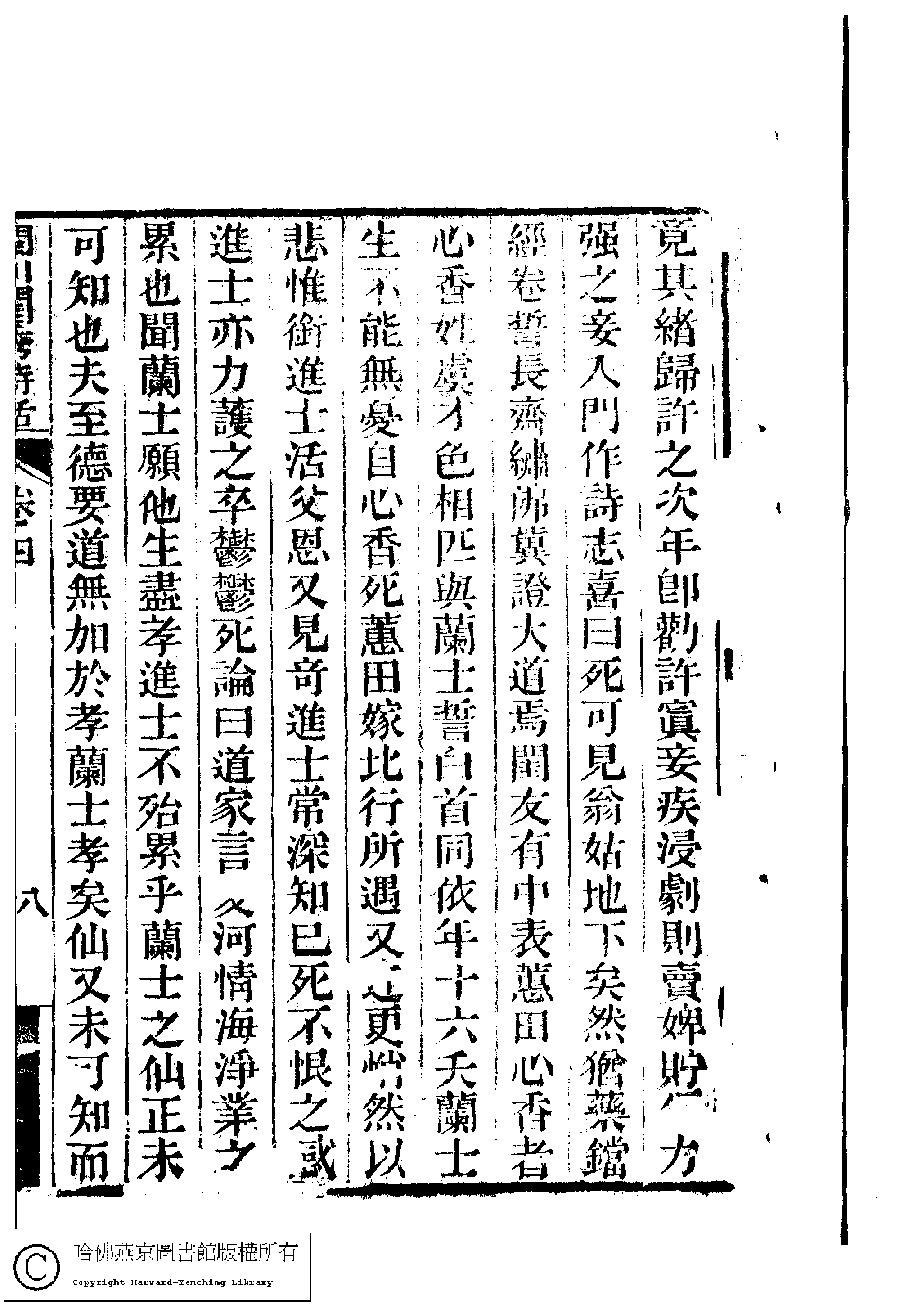 竟其緒歸許之次年卽勸許寘妾疾浸劇則賣婢貯 力
强之妾入門作詩志喜曰死可見翁姑地下矣然猶藥鐺
經卷誓長齋繡佛冀證大道焉閨友有中表蕙田心香者
心香姓虞才色相匹與蘭士誓白首同依年十六夭蘭士
生不能無憂自心香死蕙田嫁比行所遇又 更悄然以
悲惟銜進士活父恩又見奇進士常深知已死不恨之感
進士亦力護之卒鬱鬱死論曰道家言 河情海淨業之
累也聞蘭士願他生盡孝進士不殆累乎蘭士之仙正未
可知也夫至德要道無加於孝蘭士孝矣仙又未可知而
閩川閨秀詩話 卷四 八
哈佛燕京圖書館版權所有
Copyright Harvard-Yenching Library